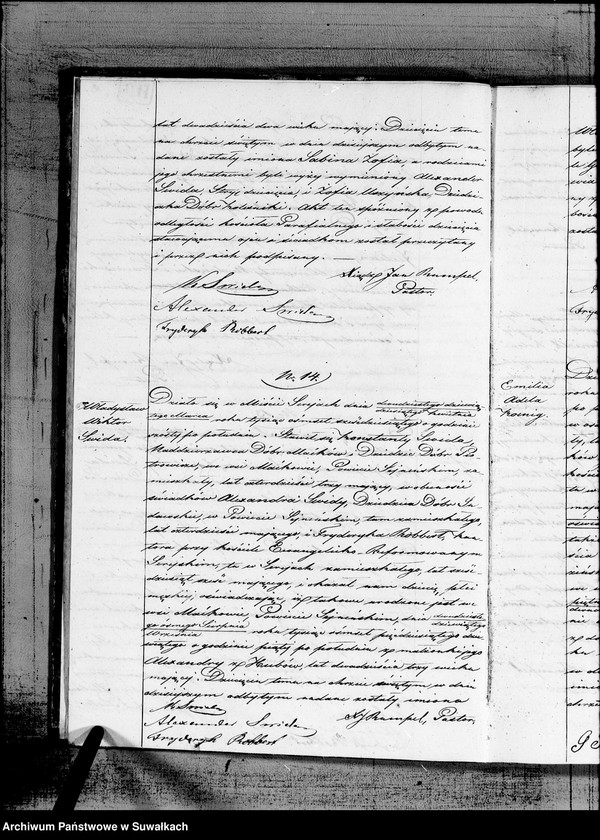 lat dwadzieścia dwa wieku mającej. Dziecięciu temu
na chrzcie świętym w dniu dzisiejszym odbytym na-
dane zostały imiona Sabina Zofia, a rodzicami
jego chrzestnemi byli wyżej wymieniony Alexander
Świda, Stryj dziecięcia, i Zofia Dziedzi-
czka Dóbr. Akt ten spóźniony z powodu
odległości kościoła Parafialnego i słabości dziecięcia
stawającemu ojcu i świadkom został przeczytany
i przez nich podpisany. —
Ksiądz Jan Rumpel.
Pastor.
K Swida
Alexander Swida
Fryderyk Robbert
N. 14.
Władysław
Wiktor
Świda.
Działo się w Mieście Serejach dnia dwudziestego dziewią-
tego Marca roku tysiąc ośmset sześćdziesiątego o godzinie
szóstej po południu. Stawił się Konstanty Świda,
Naddzierżawca Dóbr Maćków i Dziedzic Dóbr
we wsi Maćkowie, Powiecie Sejneńskim, za-
mieszkały, lat czterdzieści trzy mający, w obecności
świadków Alexandra Świdy, Dziedzica Dóbr
w Powiecie Sejneńskim, tam zamieszkałego,
lat czterdzieści mającego, i Fryderyka Robbert, kan-
tora przy kościele Ewangelicko-Reformowanym
Serejskim, tu w Serejach zamieszkałego, lat sześć-
dziesiąt sześć mającego, i okazał nam dziecię płci
męzkiej, oświadczając, iż takowe urodzone jest we
wsi Maćkowie, Powiecie Sejneńskim, dnia dwudziestego
ósmego Sierpnia
Września roku tysiąc ośmset pięćdziesiątego dzie-
wiątego o godzinie piątej po południu z małżonki jego
Alexandry z lat dwadzieścia trzy wieku
mającej. Dziecięciu temu na chrzcie świętym w dniu
dzisiejszym odbytym nadane zostały imiona
K Swida
XJ Rumpel, Pastor.
Alexander Swida
Fryderyk Robbert
Emilia
Adela
Koenig.
Archiwum Państwowe w Suwałkach